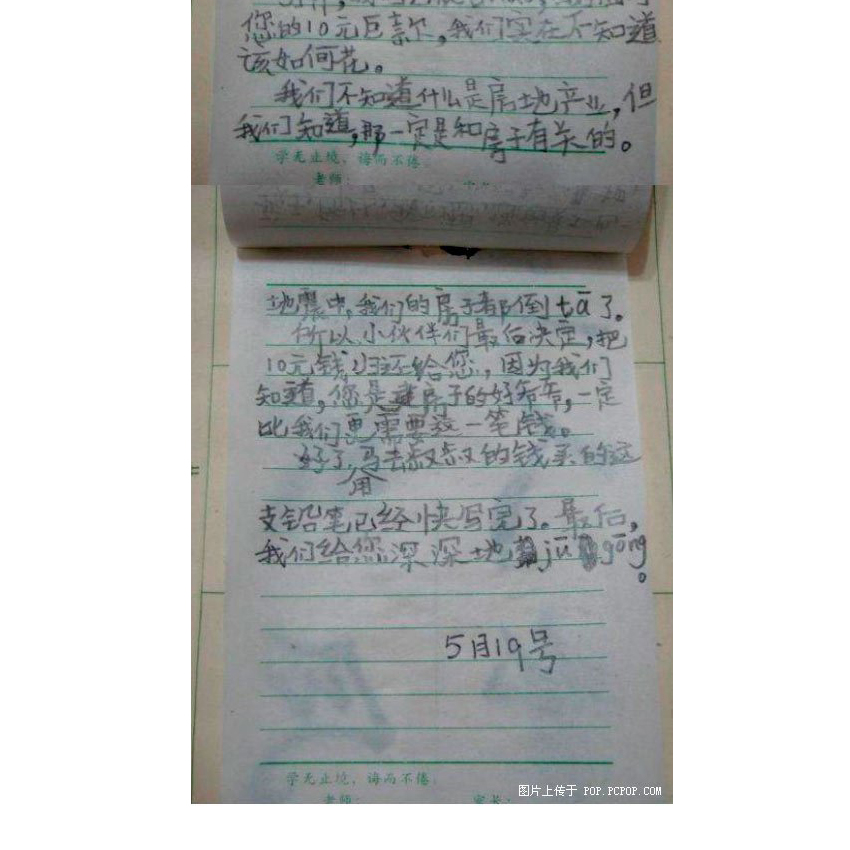 您的10元巨款，我们实在不知道
该如何花。
我们不知道什么是房地产业，但
我们知道，那一定是和房子有关的。
学无止境，诲而不倦。
老师：
地震中，我们的房子都倒tā了。
所以，小伙伴们最后决定，把
10元钱还给您，因为我们
知道，您是建房子的好爷爷，一定
比我们更需要这一笔钱。
好了，用马云叔叔的钱买的这
支铅笔已经快写完了。最后，
我们给您深深地jū gōng
。
5月19号
学无止境，诲而不倦。
老师：
家长：
图片上传于 POP.PCPOP.COM